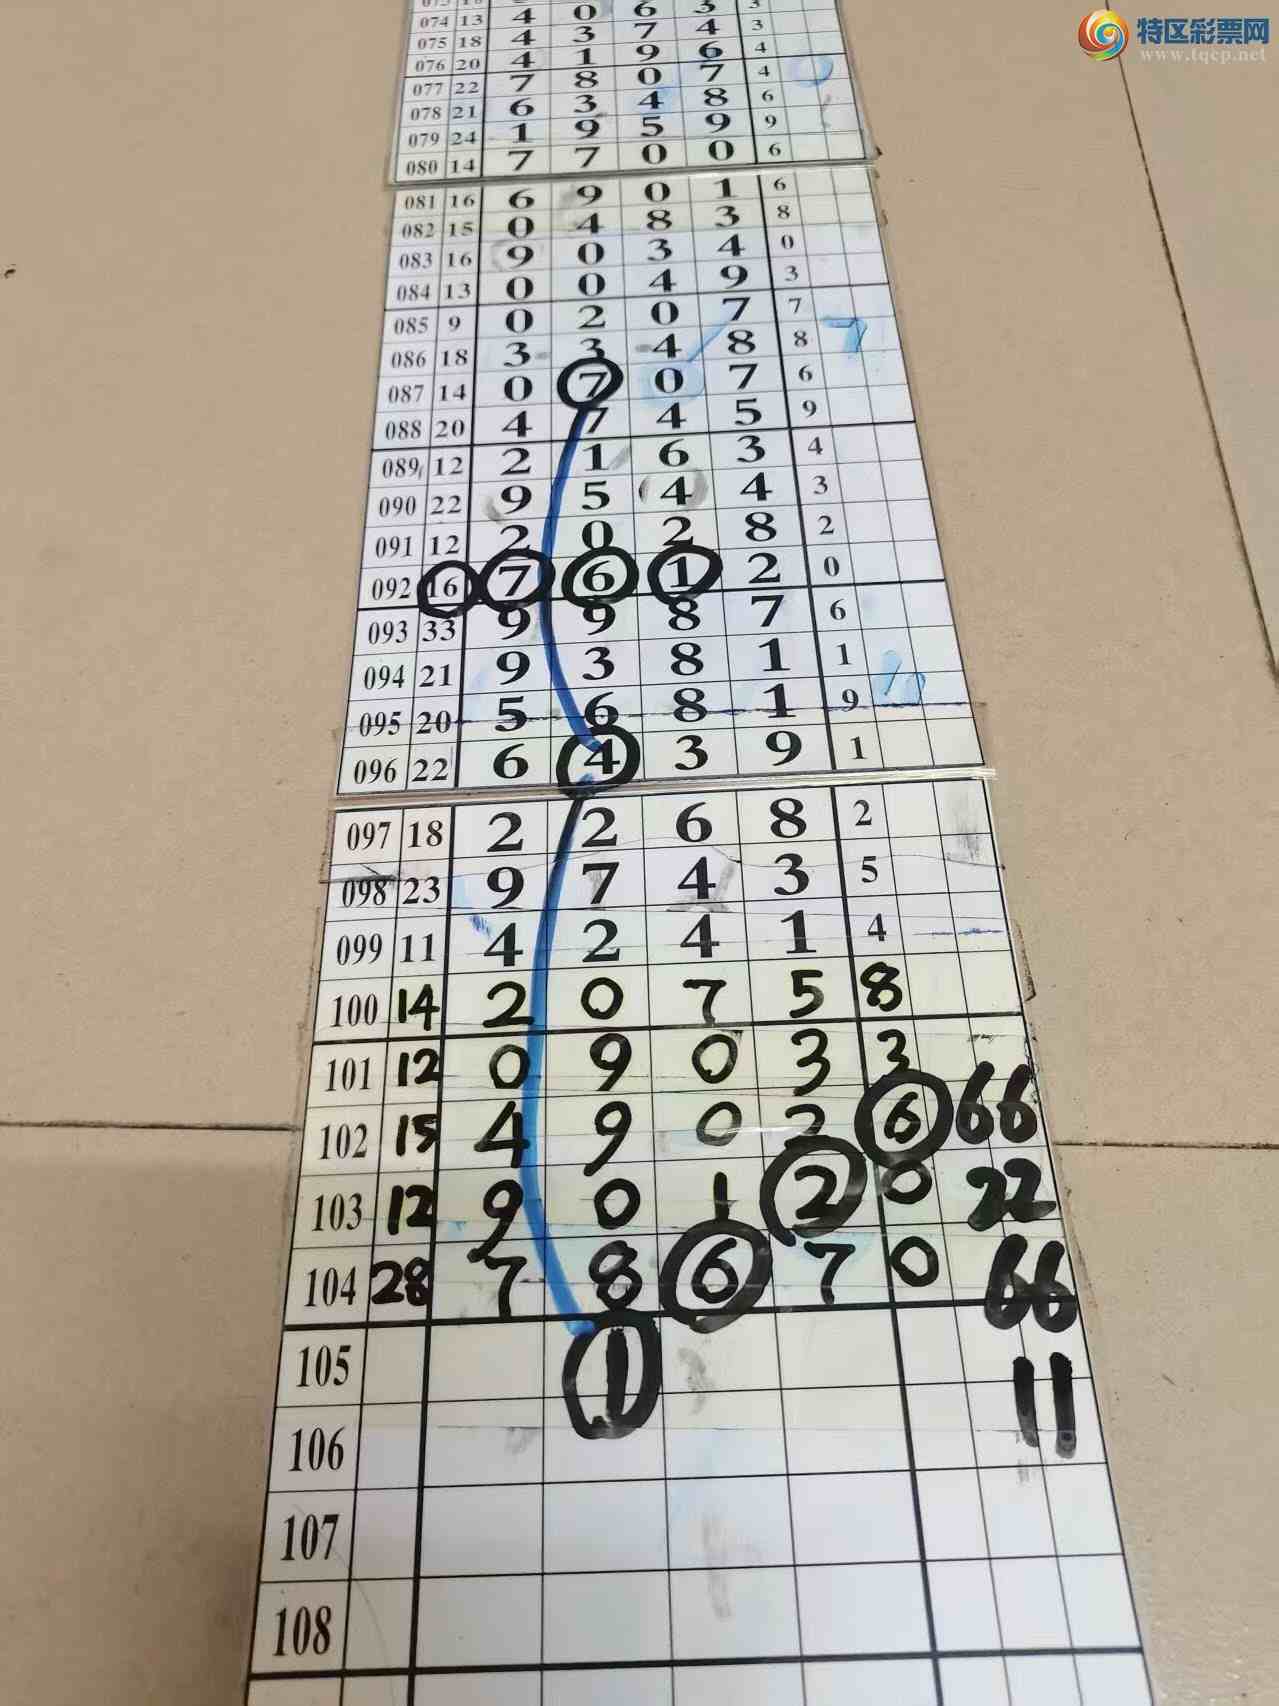 特区彩票网
www.tqcp.net
074 13 4 0 6 3 3
075 18 4 3 7 4 3
076 20 4 1 9 6 4
077 22 7 8 0 7 4
078 21 6 3 4 8 6
079 24 1 9 5 9 9
080 14 7 7 0 0 6
081 16 6 9 0 1 6
082 15 0 4 8 3 8
083 16 9 0 3 4 0
084 13 0 0 4 9 3
085 9 0 2 0 7 7
086 18 3 3 4 8 8
087 14 0 7 0 7 6
088 20 4 7 4 5 9
089 12 2 1 6 3 4
090 22 9 5 4 4 3
091 12 2 0 2 8 2
092 16 7 6 1 2 0
093 33 9 9 8 7 6
094 21 9 3 8 1 1
095 20 5 6 8 1 9
096 22 6 4 3 9 1
097 18 2 2 6 8 2
098 23 9 7 4 3 5
099 11 4 2 4 1 4
100 14 2 0 7 5 8
101 12 0 9 0 3 3
102 15 4 9 0 2 6 66
103 12 9 0 1 2 0 22
104 28 7 8 6 7 0 66
105 1 11
106
107
108